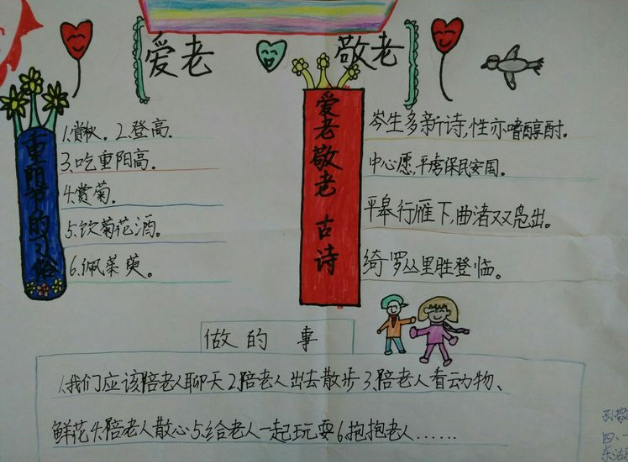 爱老
敬老
重阳节的习俗
1.赏秋。2.登高。
3.吃重阳高。
4.赏菊。
5.饮菊花酒。
6.佩茱萸。
爱老敬老 古诗
岑生多新诗,性亦嗜醇酎。
中心愿,平虏保民安国。
平皋行雁下,曲渚双凫出。
绮罗丛里胜登临。
做的事
1.我们应该陪老人聊天2.陪老人出去散步3.陪老人看动物、
鲜花4.陪老人散心5.给老人一起玩耍6.抱抱老人......